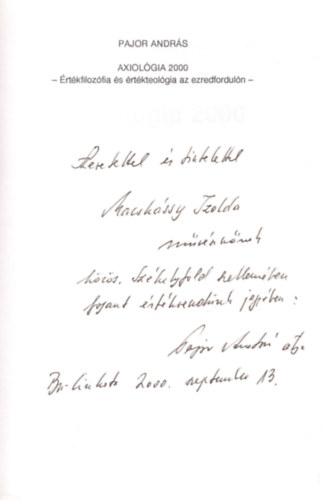 PAJOR ANDRÁS
AXIOLÓGIA 2000
– Értékfilozófia és értékteológia az ezredfordulón –
Szeretettel és tisztelettel
Macskássy Izolda
művésznőnek
közös, Székelyföld szellemében
fogant értékrendünk jegyében:
Pajor András
2000. szeptember 13.